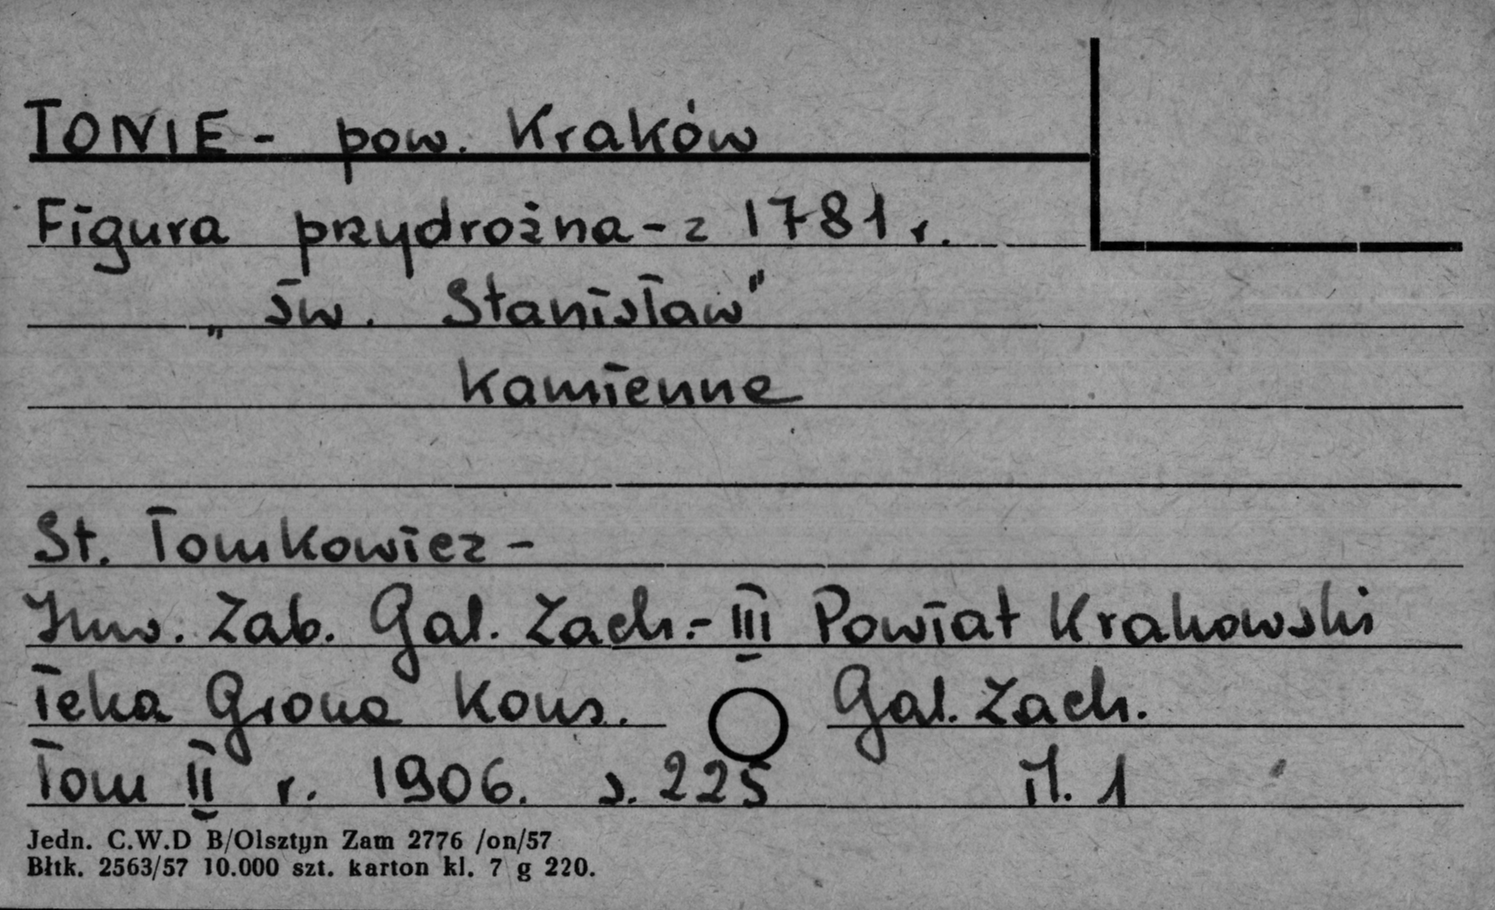 TONIE - pow. Kraków
Figura przydrożna - z 1781 r.
„św. Stanisław"
kamienne
St. Tomkowicz -
Inw. Zab. Gal. Zach. - III Powiat Krakowski
Teka Grona Kons. Gal. Zach.
Tom II r. 1906. s. 225 il. 1
Jedn. C.W.D B/Olsztyn Zam 2776 /on/57
Błtk. 2563/57 10.000 szt. karton kl. 7 g 220.